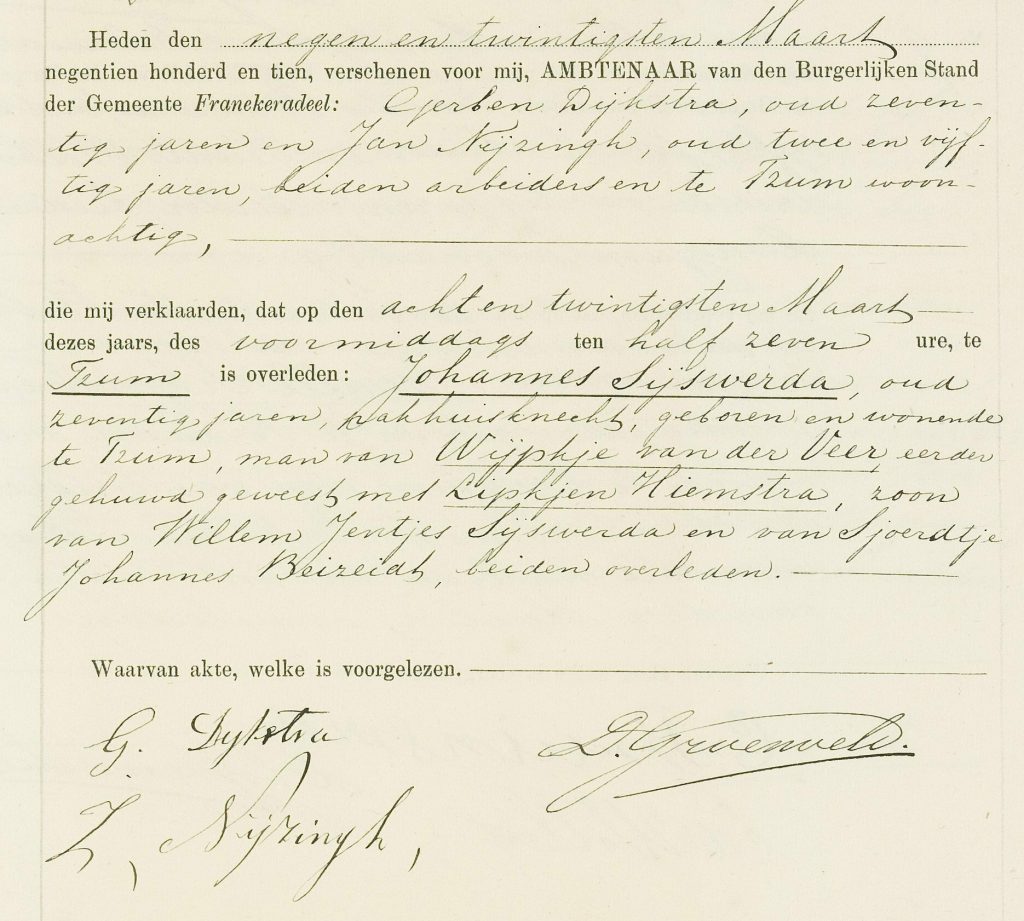 Heden den negen en twintigsten Maart
negentien honderd en tien, verschenen voor mij, AMBTENAAR van den Burgerlijken Stand
der Gemeente Franekeradeel: Gerben Dijkstra, oud zeven-
tig jaren en Jan Nijzingh, oud twee en vijf-
tig jaren, beiden arbeiders en te Tzum woon-
achtig,
die mij verklaarden, dat op den acht en twintigsten Maart
dezes jaars, des voormiddags ten half zeven ure, te
Tzum is overleden: Johannes Sijswerda, oud
zeventig jaren, pakhuisknecht, geboren en wonende
te Tzum, man van Wijpkje van der Veer, eerder
gehuwd geweest met Lipkjen Hiemstra, zoon
van Willem Jentjes Sijswerda en van Sjoerdtje
Johannes Beizeidt, beiden overleden.
Waarvan akte, welke is voorgelezen.
G. Dykstra D. Groeneveld.
J, Nijzingh,